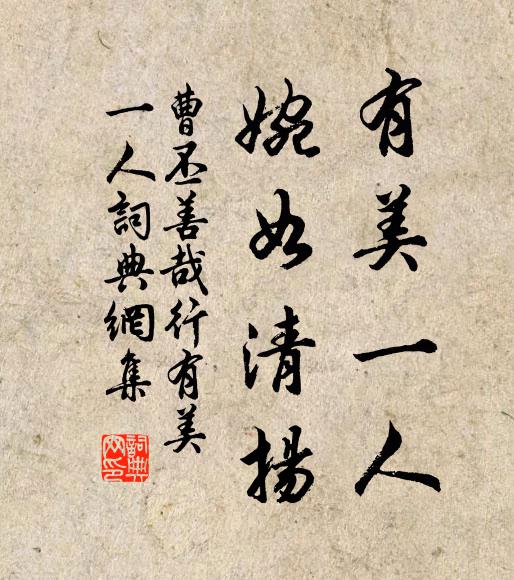 有美一人
婉如清揚
曹丕善哉行有美
一人詞典網集
詞典
网印